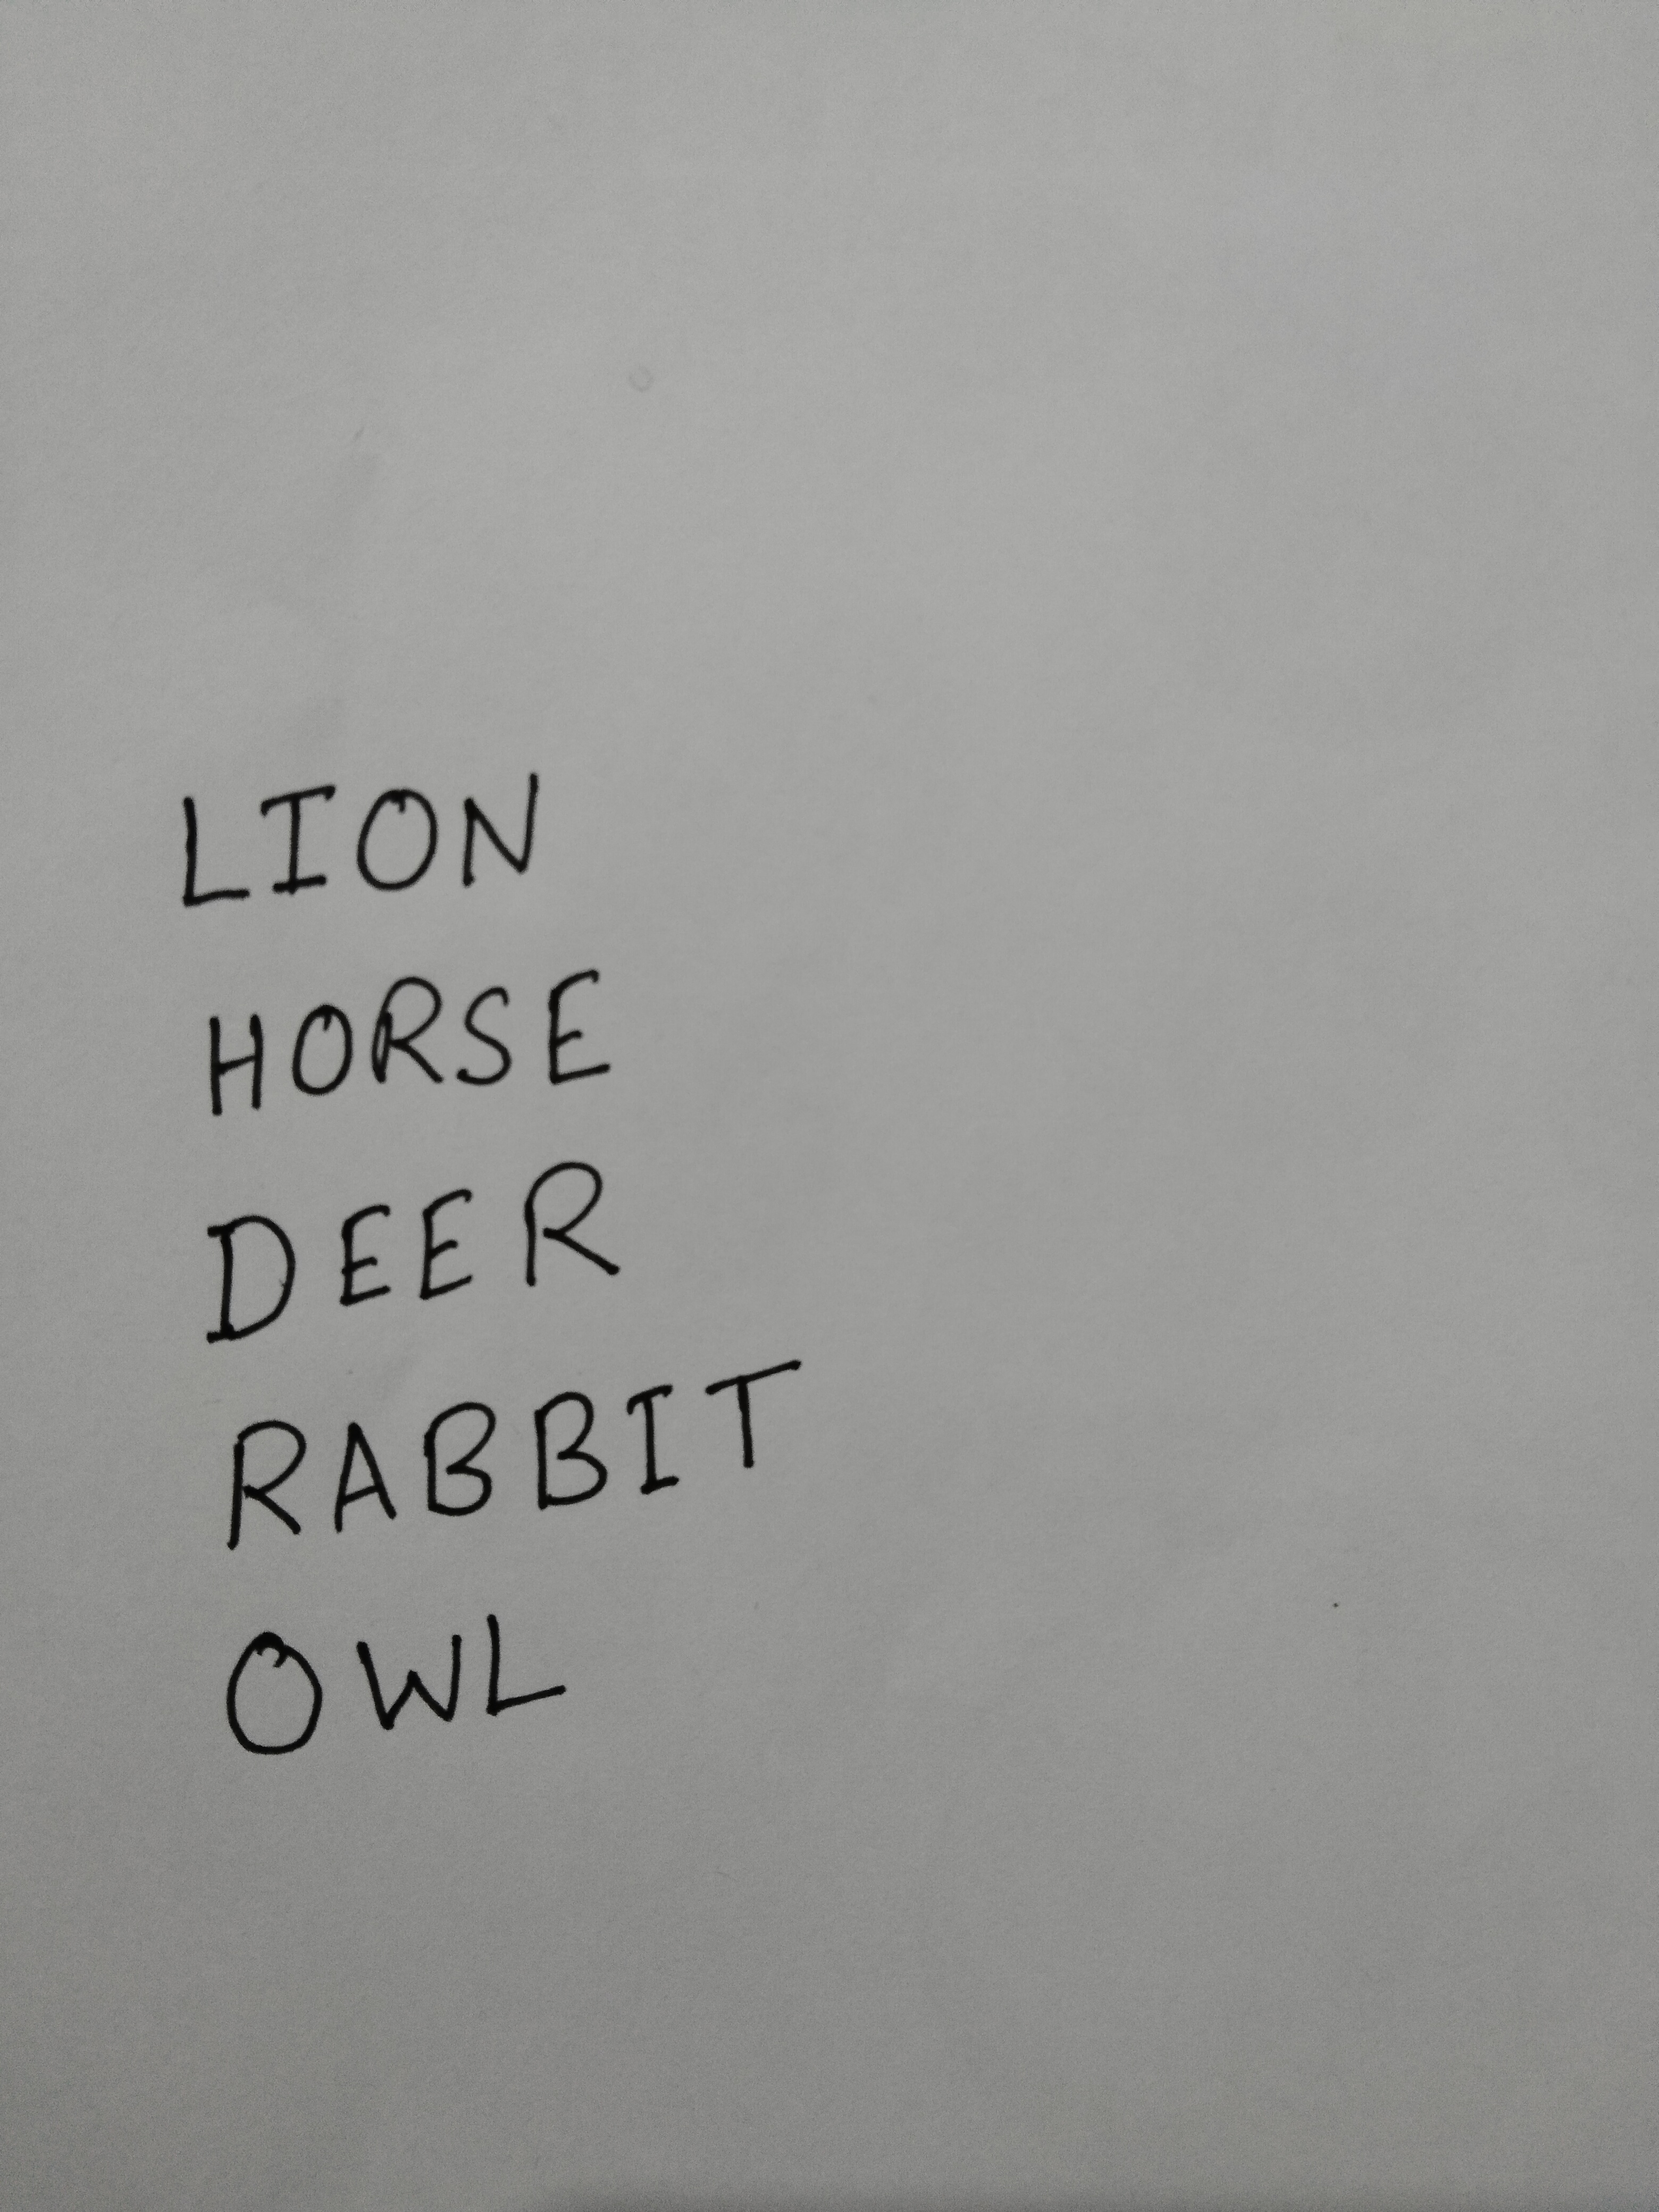 LION
HORSE
DEER
RABBIT
OWL